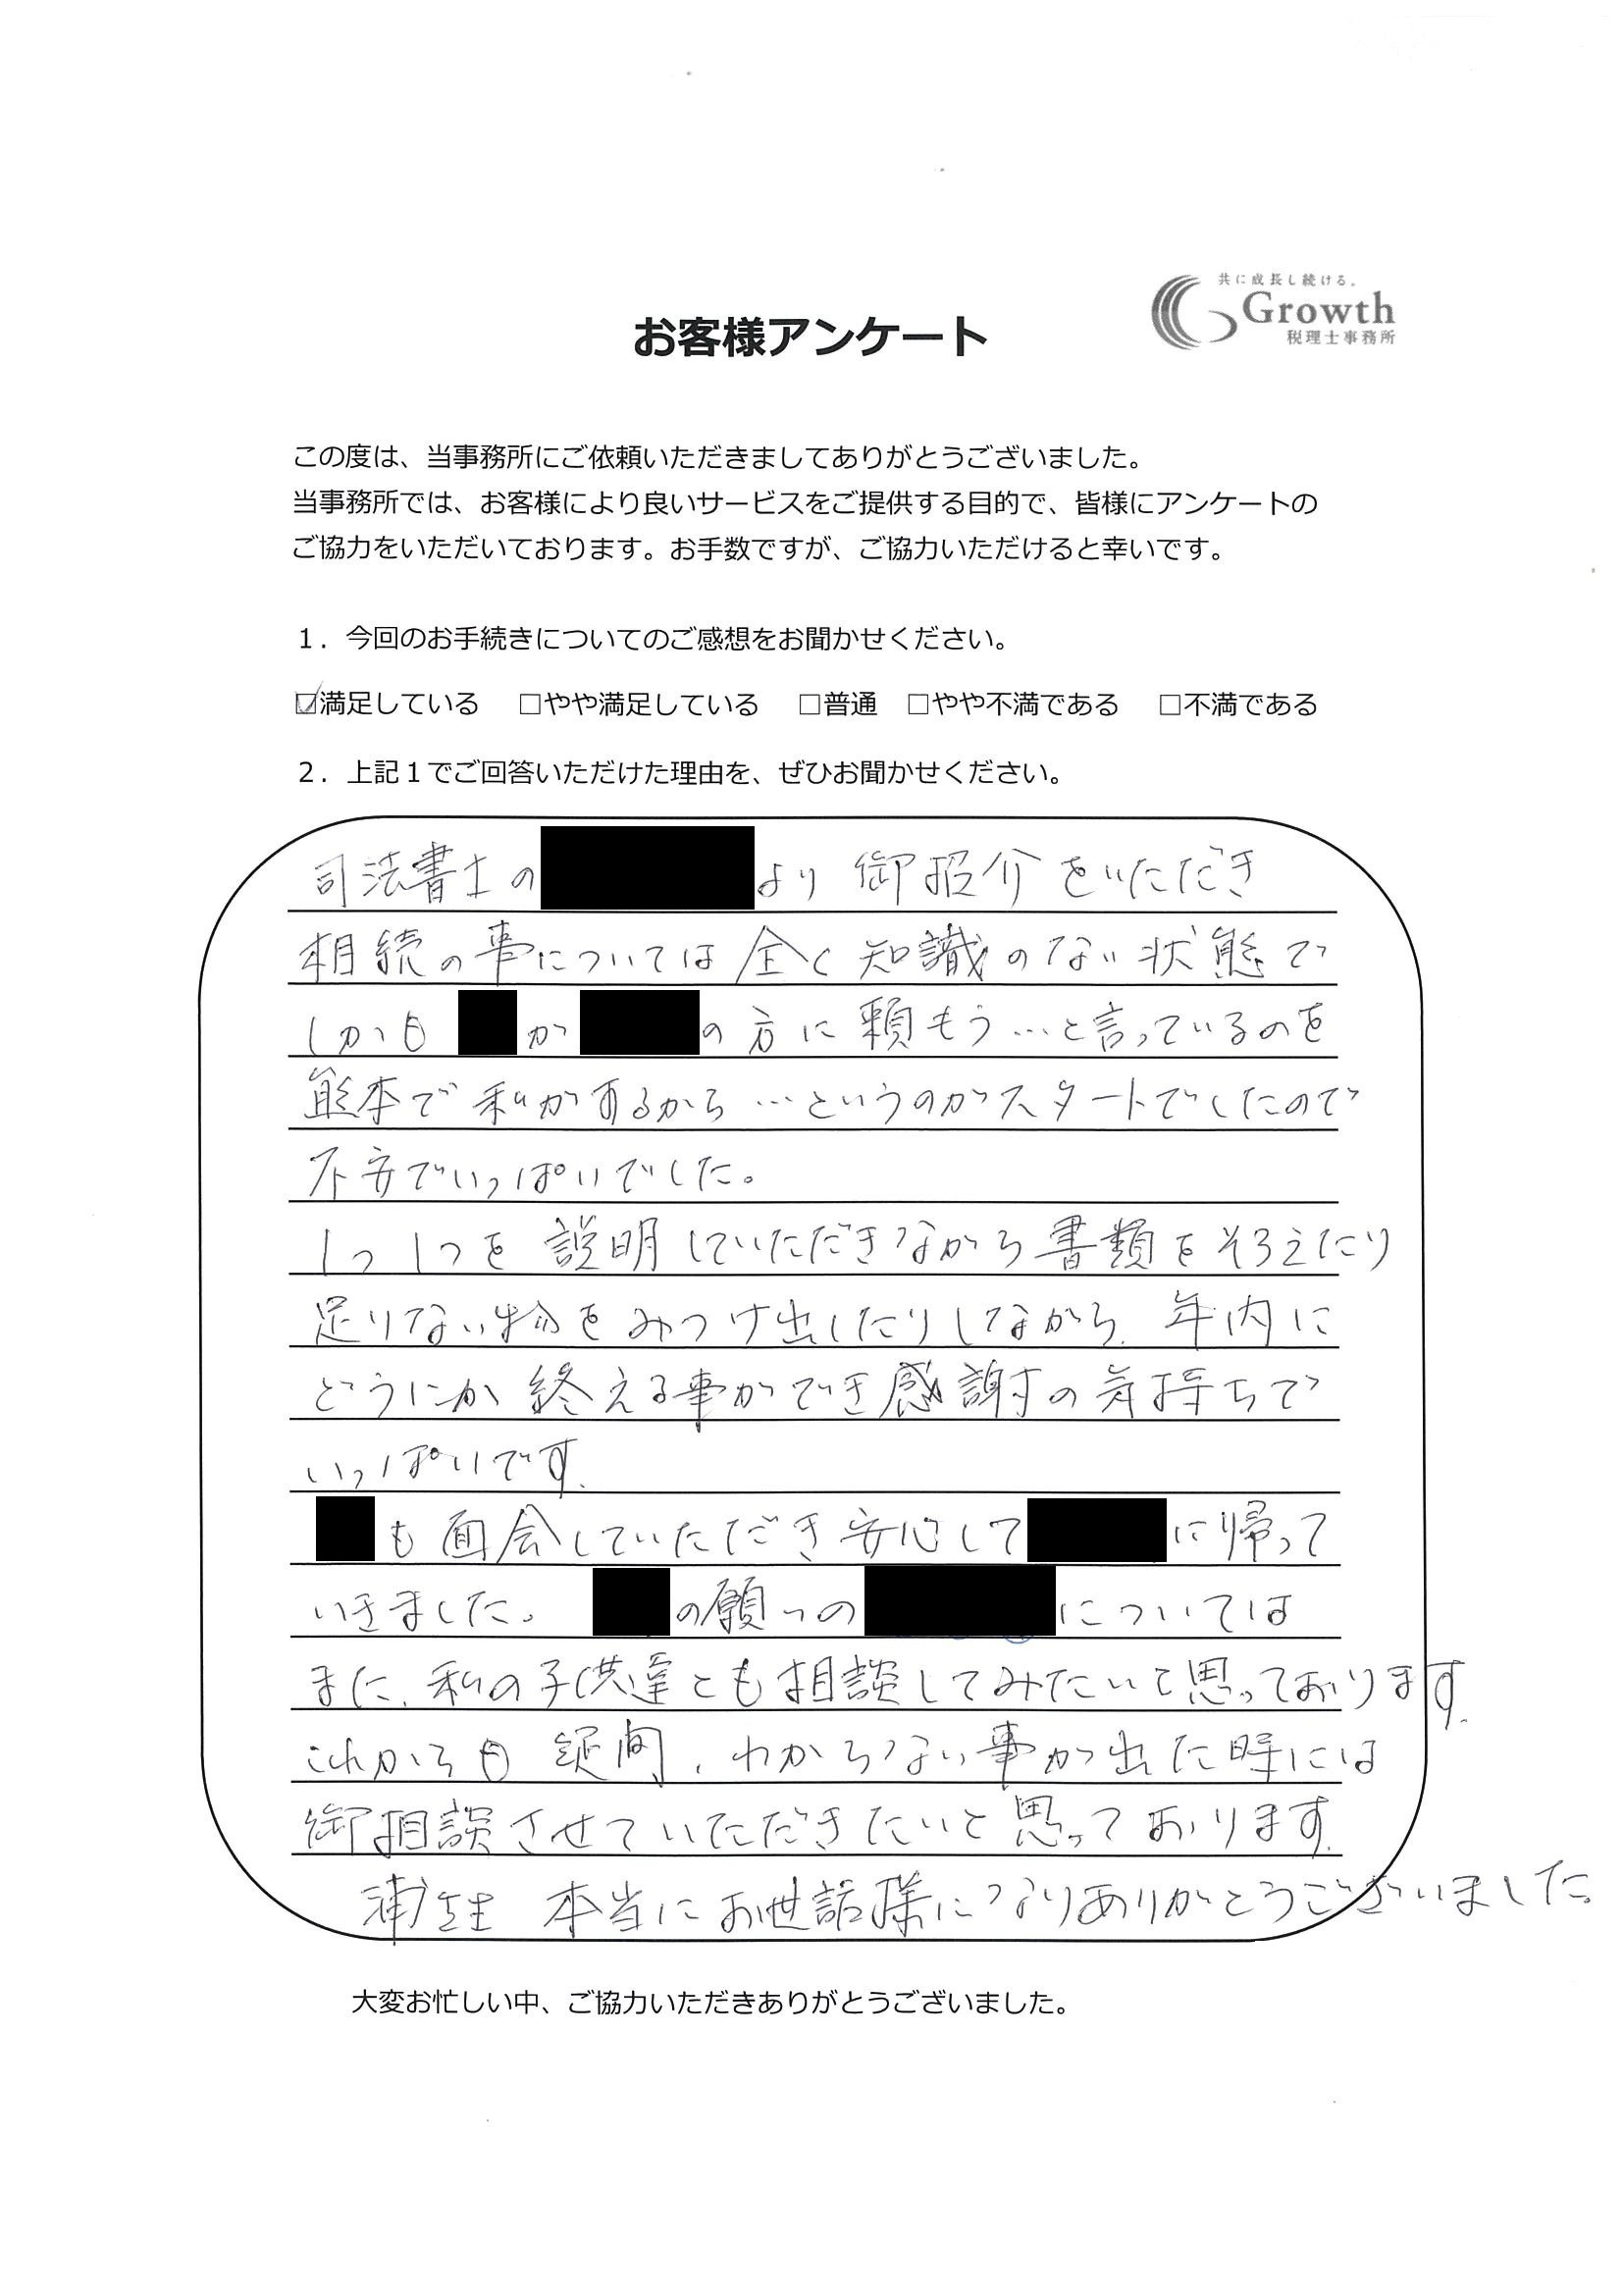 共に成長し続ける。
Growth
税理士事務所
お客様アンケート
この度は、当事務所にご依頼いただきましてありがとうございました。
当事務所では、お客様により良いサービスをご提供する目的で、皆様にアンケートの
ご協力をいただいております。お手数ですが、ご協力いただけると幸いです。
１．今回のお手続きについてのご感想をお聞かせください。
☑満足している　□やや満足している　□普通　□やや不満である　□不満である
２．上記１でご回答いただけた理由を、ぜひお聞かせください。
司法書士の より 御紹介をいただき
相続の事については全く知識のない状態で
しかも が の方に頼もう…と言っているのを
熊本で私がするから…というのがスタートでしたので
不安でいっぱいでした。
1つ1つを説明していただきながら書類をそろえたり
足りない物をみつけ出したりしながら、年内に
どうにか終える事ができ感謝の気持ちで
いっぱいです。
も面会していただき安心して に帰って
いきました。 の願いの については
また、私の子供達とも相談してみたいと思っております。
これからも疑問、わからない事が出た時には
御相談させていただきたいと思っております。
浦先生 本当にお世話様になりありがとうございました。
大変お忙しい中、ご協力いただきありがとうございました。